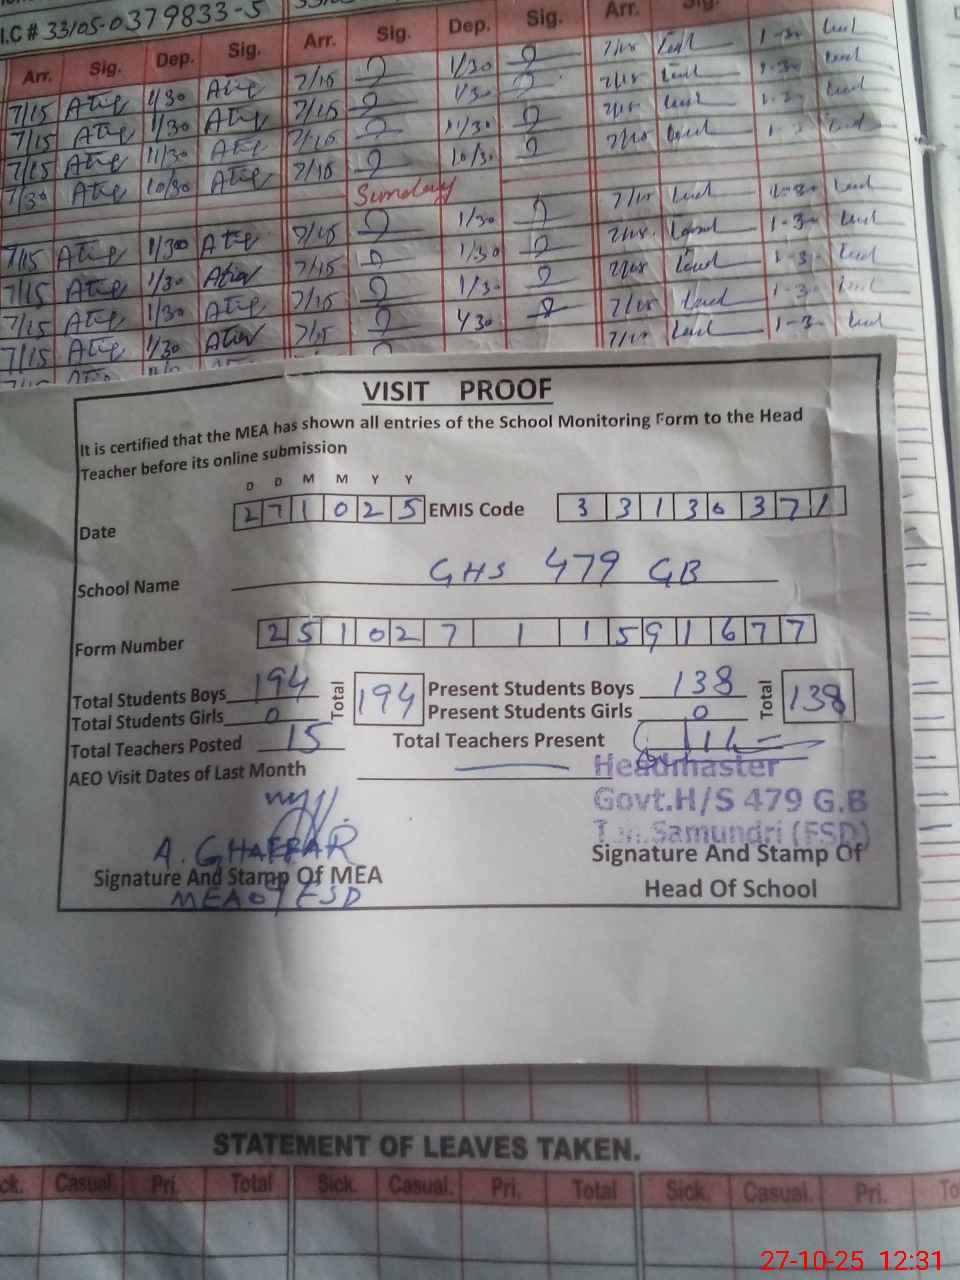 I.C # 33105-0379833-5
Arr. Sig. Dep. Sig. Arr. Sig. Dep. Sig. Arr. Sig.
7/15 Atiq 1/30 Atiq 7/15 1/30
7/15 Atiq 1/30 Atiq 7/15 1/30
7/15 Atiq 11/30 Atiq 7/15 11/30
7/30 Atiq 10/30 Atiq 7/15 10/30
Sunday
7/15 Atiq 1/30 Atiq 7/15 1/30
7/15 Atiq 1/30 Atiq 7/15 1/30
7/15 Atiq 1/30 Atiq 7/15 1/30
7/15 Atiq 1/30 Atiq 7/15 1/30
VISIT PROOF
It is certified that the MEA has shown all entries of the School Monitoring Form to the Head
Teacher before its online submission
D D M M Y Y
Date 2 7 1 0 2 5 EMIS Code 3 3 1 3 0 3 7 1
School Name GHS 479 GB
Form Number 2 5 1 0 2 7 1 1 5 9 1 6 7 7
Total Students Boys 194 Total 194 Present Students Boys 138 Total 138
Total Students Girls 0 Present Students Girls 0
Total Teachers Posted 15 Total Teachers Present 11
AEO Visit Dates of Last Month
Headmaster
Govt.H/S 479 G.B
Teh.Samundri (FSD)
A. GHAFFAR
Signature And Stamp Of MEA
MEA 07 FSD
Signature And Stamp Of
Head Of School
STATEMENT OF LEAVES TAKEN.
Sick. Casual. Pri. Total Sick. Casual. Pri. Total Sick. Casual. Pri.
27-10-25 12:31